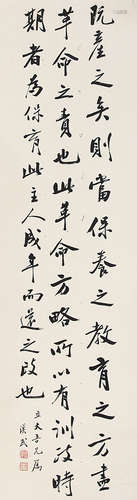 既產之矣則當保養之教育之方盡
革命之責也此革命方略所以有訓政時
期者為保育此主人成年而還之政也
吾兄屬